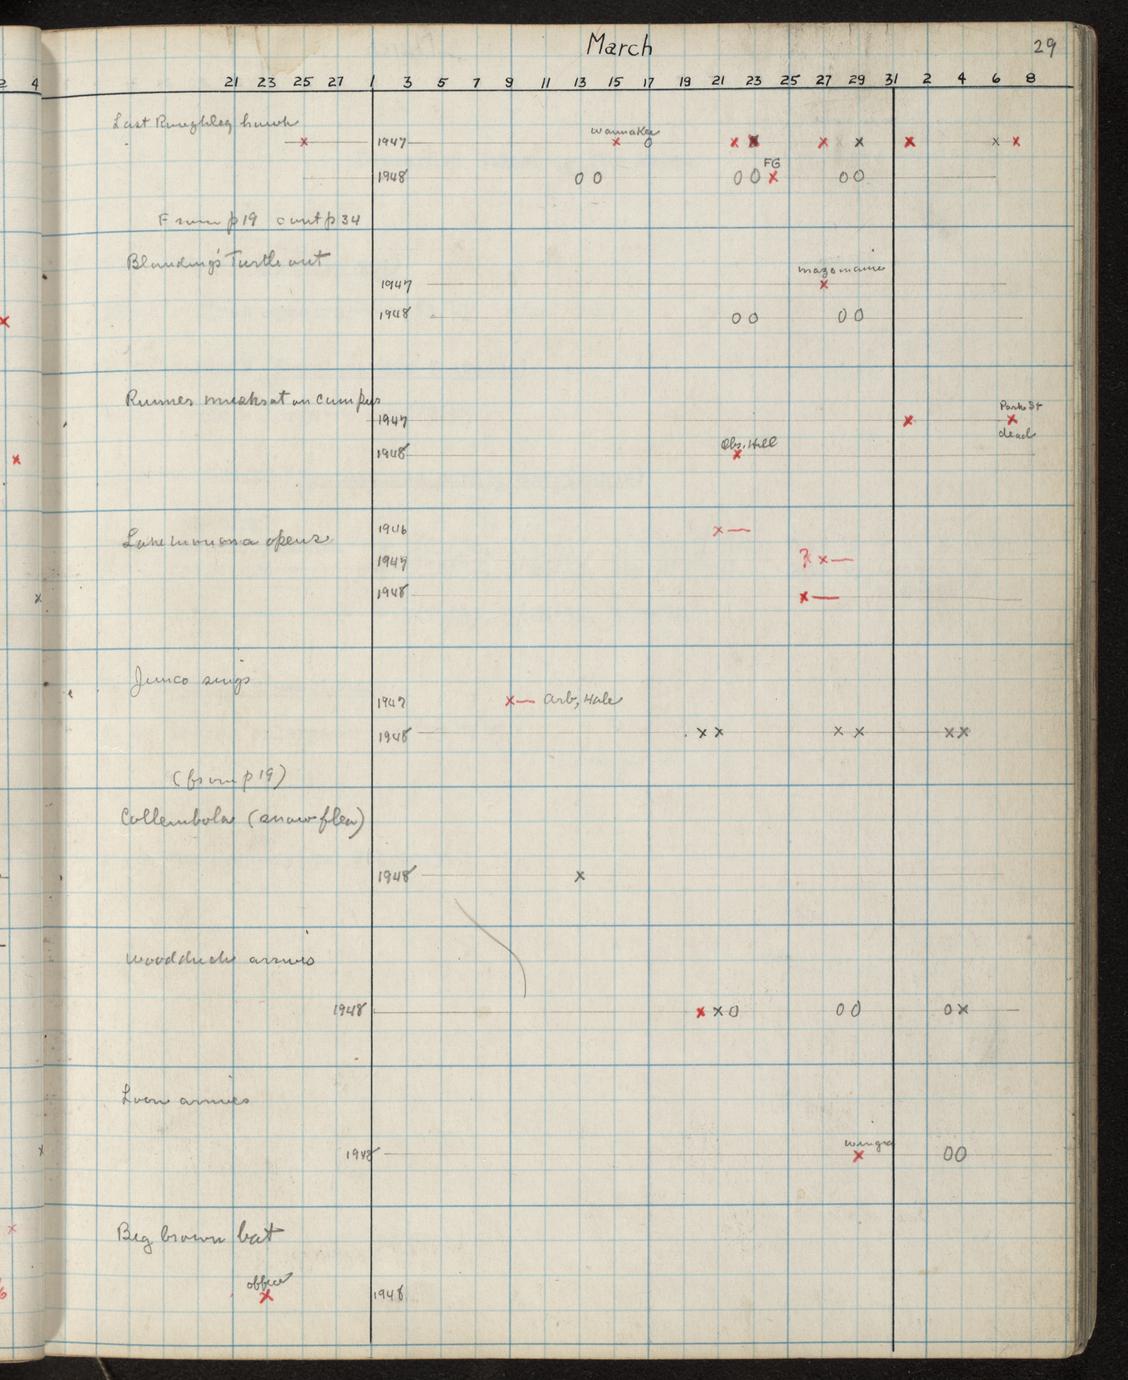 March 29
2 4 21 23 25 27 1 3 5 7 9 11 13 15 17 19 21 23 25 27 29 31 2 4 6 8
Last Roughleg hawk
wannakee
x 1947 x 0 x x x x x x x x
FG
1948 0 0 0 0 x 0 0
From p 19 cont p 34
Blanding's Turtle out
mazomanie
1947 x
1948 0 0 0 0
x
Runner muskrat on campus
Park St
1947 x x
dead
Obs. Hill
1948 x
x
1946 x—
Lake monona opens
1947 ? x—
1948 x—
x
Junco sings
1947 x— Arb, Hale
1948 x x x x x x
(from p 19)
Collembola (snow flea)
1948 x
woodduck arrives
1948 x x 0 0 0 0 x
Loon arrives
wingra
1948 x 0 0
x
Big brown bat
x
office
x 1948